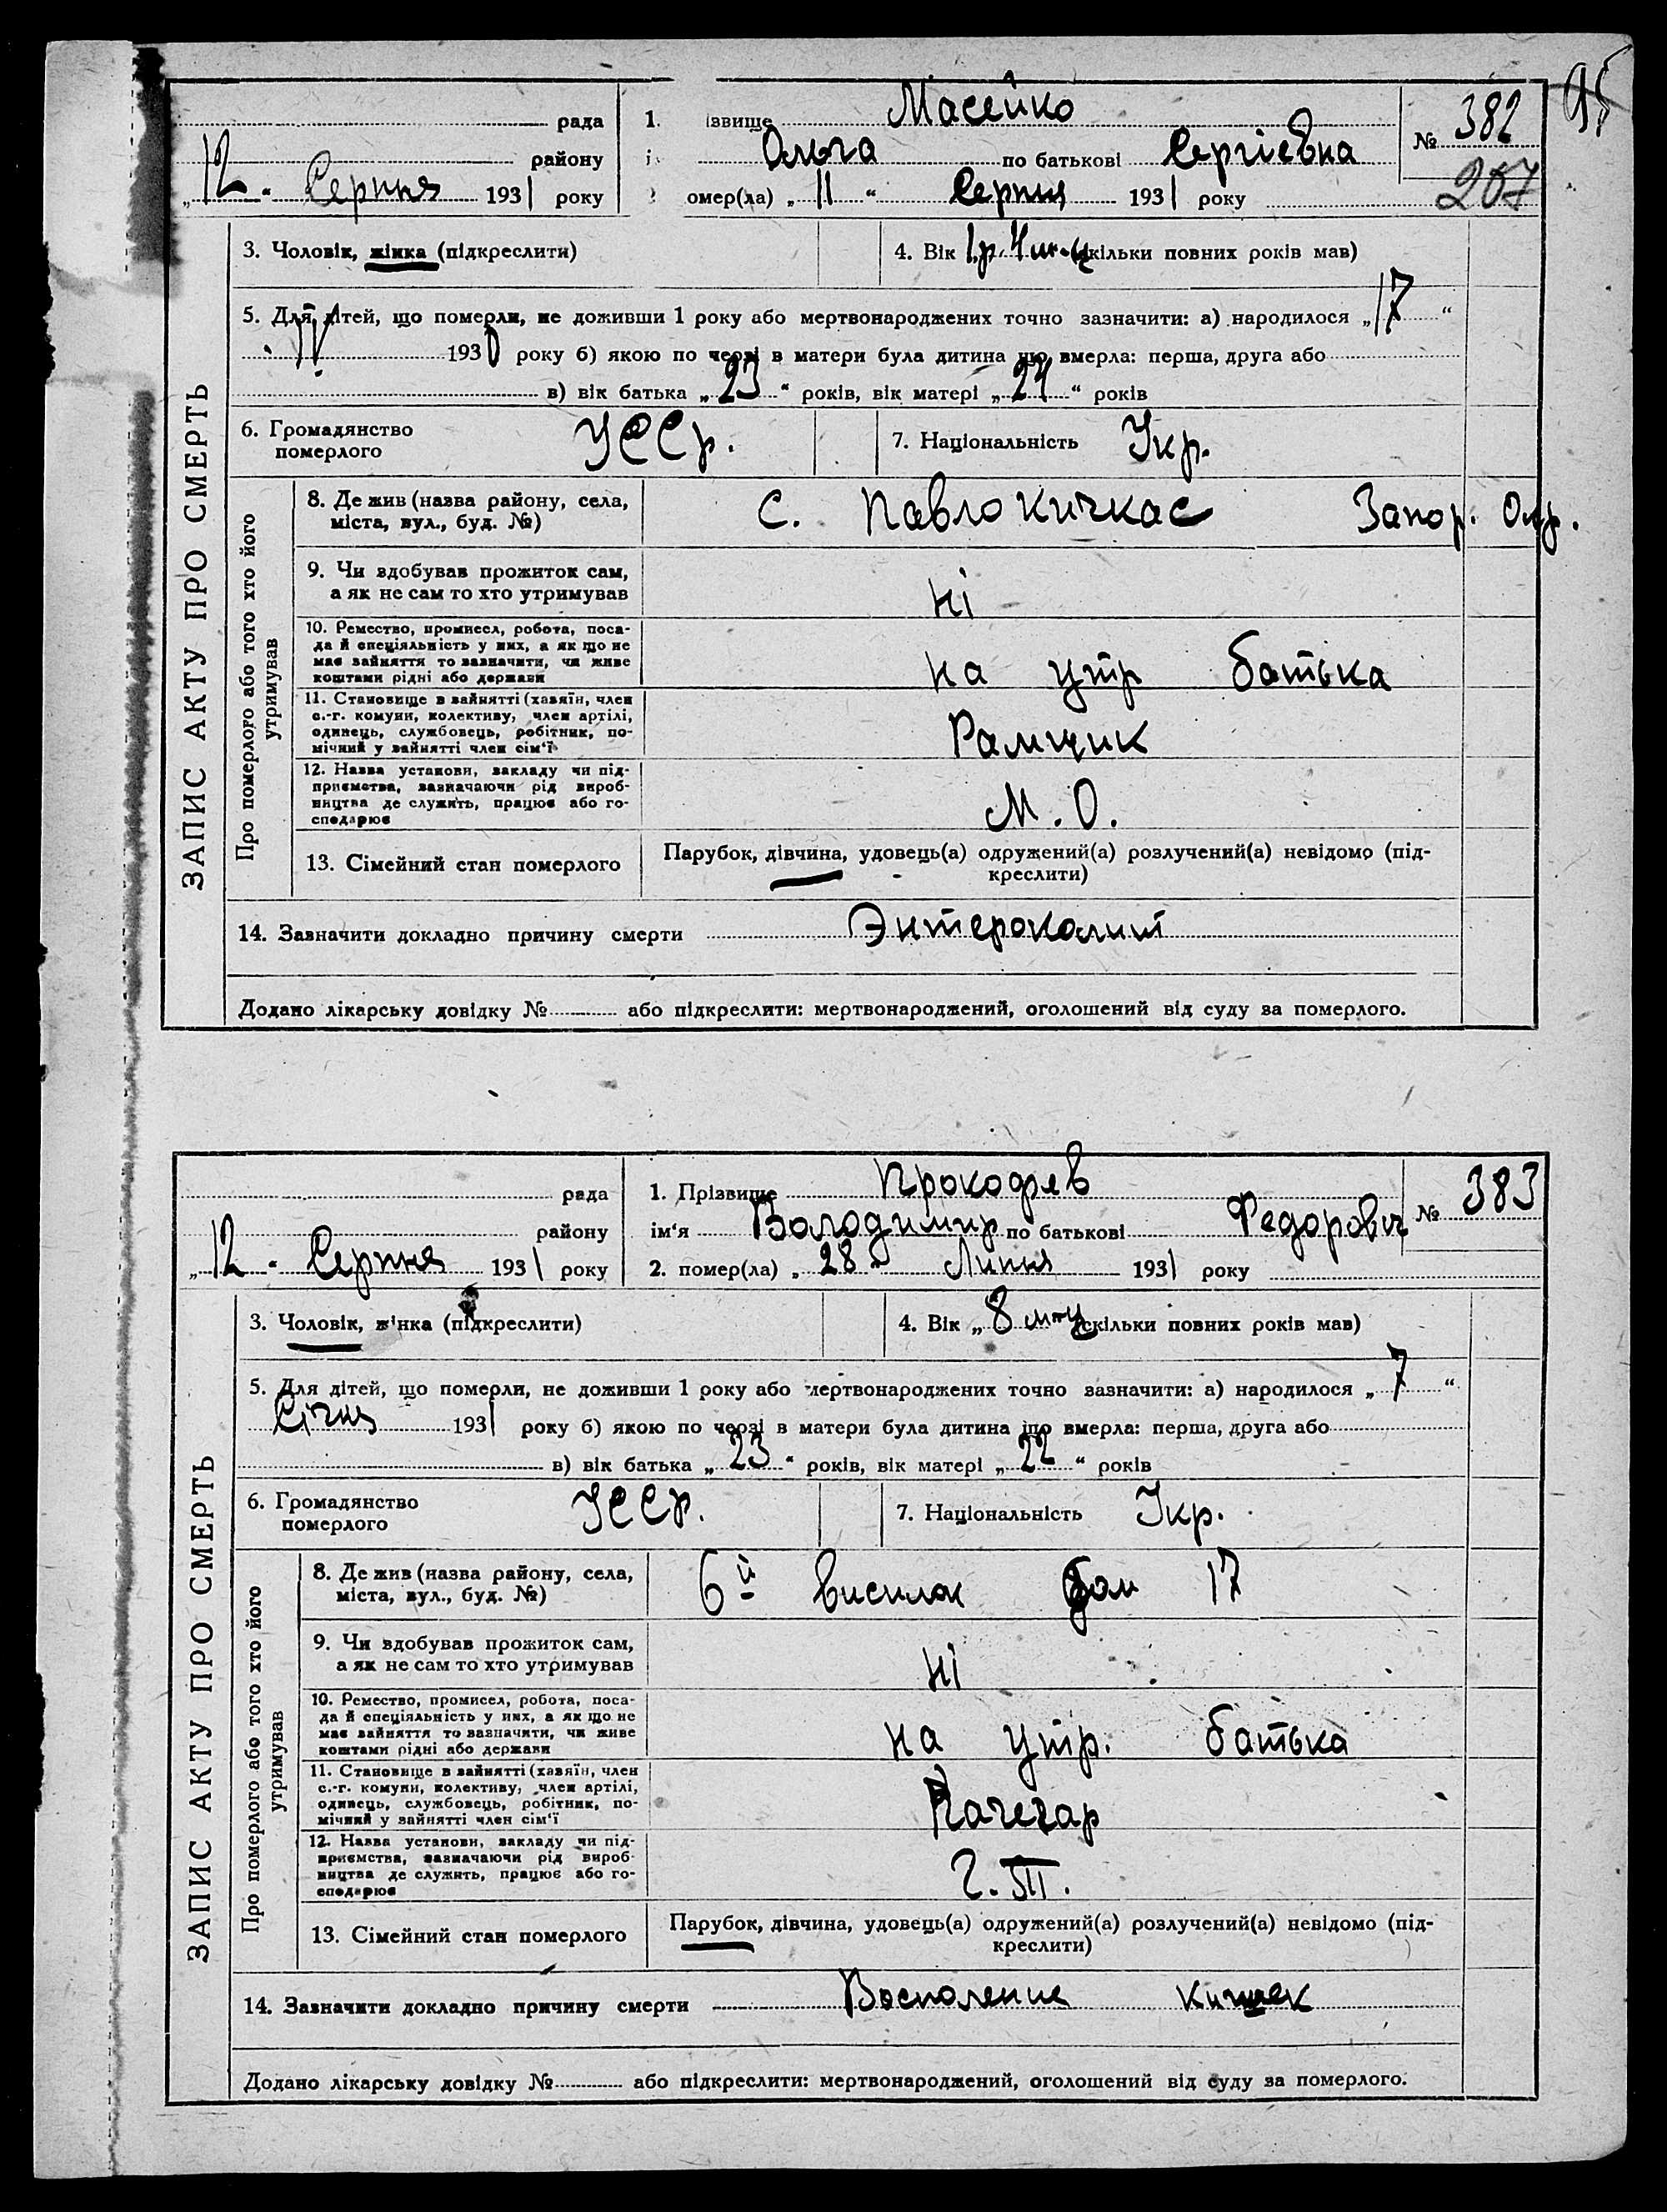 95
рада
району
„12“ Серпня 1931 року
1. ізвище Масейко
Ольга по батькові Сергіевна
омер(ла) „11“ Серпня 1931 року
№ 382
207
ЗАПИС АКТУ ПРО СМЕРТЬ
3. Чоловік, жінка (підкреслити)
4. Вік 1 р. 4 м-ц (скільки повних років мав)
5. Для дітей, що померли, не доживши 1 року або мертвонароджених точно зазначити: а) народилося „17“
IV 1930 року б) якою по черзі в матери була дитина що вмерла: перша, друга або
в) вік батька „23“ років, вік матері „24“ років
6. Громадянство
померлого
УССР.
7. Національність Укр.
Про померлого або того хто його
утримував
8. Де жив (назва району, села,
міста, вул., буд. №)
С. Павло Кичкас Запор. Окр.
9. Чи здобував прожиток сам,
а як не сам то хто утримував
Ні
10. Ремество, промисел, робота, поса-
да й спеціяльність у них, а як що не
має зайняття то зазначити, чи живе
коштами рідні або держави
На утр батька
11. Становище в зайнятті (хазяїн, член
с.-г. комуни, колективу, член артілі,
одинець, службовець, робітник, по-
мічний у зайнятті член сім'ї
Рамщик
12. Назва установи, закладу чи під-
приємства, зазначаючи рід вироб-
ництва де служить, працює або го-
сподарює
М. О.
13. Сімейний стан померлого
Парубок, дівчина, удовець(а) одружений(а) розлучений(а) невідомо (під-
креслити)
14. Зазначити докладно причину смерти Энтероколит
Додано лікарську довідку № або підкреслити: мертвонароджений, оголошений від суду за померлого.
рада
району
„12“ Серпня 1931 року
1. Прізвище Прокофев
ім'я Володимир по батькові Федорович
2. помер(ла) „28“ Липня 1931 року
№ 383
ЗАПИС АКТУ ПРО СМЕРТЬ
3. Чоловік, жінка (підкреслити)
4. Вік „8 м-ц (скільки повних років мав)
5. Для дітей, що померли, не доживши 1 року або мертвонароджених точно зазначити: а) народилося „7“
Січня 1931 року б) якою по черзі в матери була дитина що вмерла: перша, друга або
в) вік батька „23“ років, вік матері „22“ років
6. Громадянство
померлого
УССР.
7. Національність Укр.
Про померлого або того хто його
утримував
8. Де жив (назва району, села,
міста, вул., буд. №)
6й висилок дом 17
9. Чи здобував прожиток сам,
а як не сам то хто утримував
Ні
10. Ремество, промисел, робота, поса-
да й спеціяльність у них, а як що не
має зайняття то зазначити, чи живе
коштами рідні або держави
на утр. батька
11. Становище в зайнятті (хазяїн, член
с.-г. комуни, колективу, член артілі,
одинець, службовець, робітник, по-
мічний у зайнятті член сім'ї
Качегар
12. Назва установи, закладу чи під-
приємства, зазначаючи рід вироб-
ництва де служить, працює або го-
сподарює
13. Сімейний стан померлого
Парубок, дівчина, удовець(а) одружений(а) розлучений(а) невідомо (під-
креслити)
14. Зазначити докладно причину смерти Восполение кишек
Додано лікарську довідку № або підкреслити: мертвонароджений, оголошений від суду за померлого.